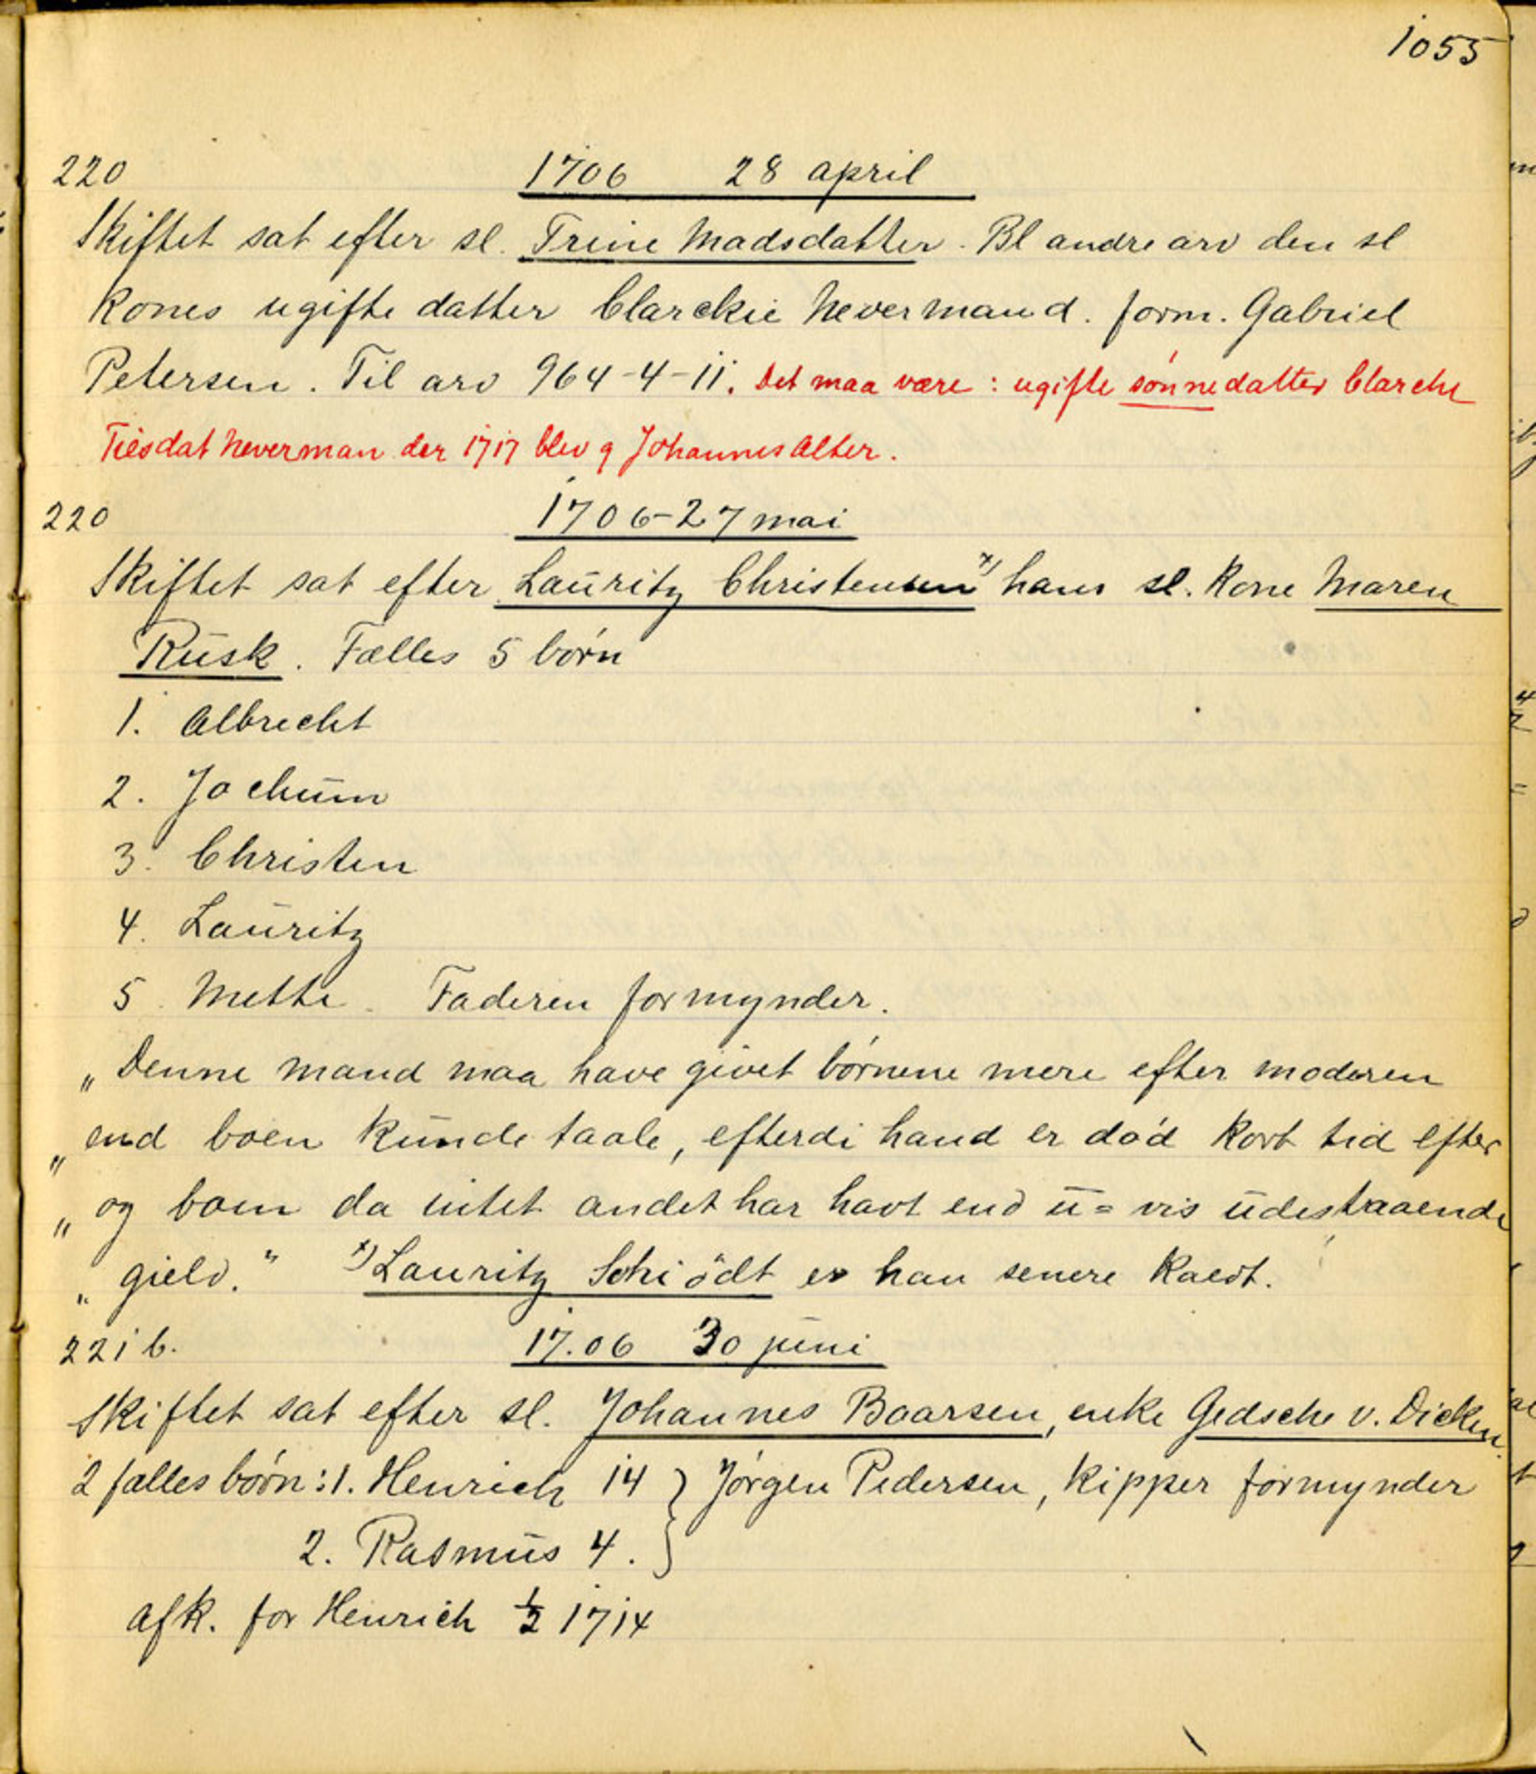 1055
220 1706 28 april
Skiftet sat efter sl. Trine Madsdatter. Bl andre arv den sl
Kones ugifte datter Clarckie Nevermand. form. Gabriel
Petersen. Til arv 964-4-11. Det maa være: ugifte sønnedatter Clarche
Tiesdat Neverman der 1717 blev g Johannes Alter.
220 1706-27 mai
Skiftet sat efter Lauritz Christensen x) hans sl. Kone Maren
Rusk. Fælles 5 børn
1. Albrecht
2. Jochum
3. Christen
4. Lauritz
5. Mette. Faderen formynder.
„Denne mand maa have givet børnene mere efter moderen
„end boen kunde taale, efterdi hand er død kort tid efter
„og boen da intet andet har havt end u=vis udestaaende
„gield." x) Lauritz Schiödt er han senere Kaldt.
221 b. 17.06 30 juni
Skiftet sat efter sl. Johannes Baarsen, enke Gedsche v. Dicken.
2 fælles børn: 1. Henrich 14 } Jørgen Pedersen, Kipper formynder
2. Rasmus 4.
Afk. for Henrich 1/2 1714